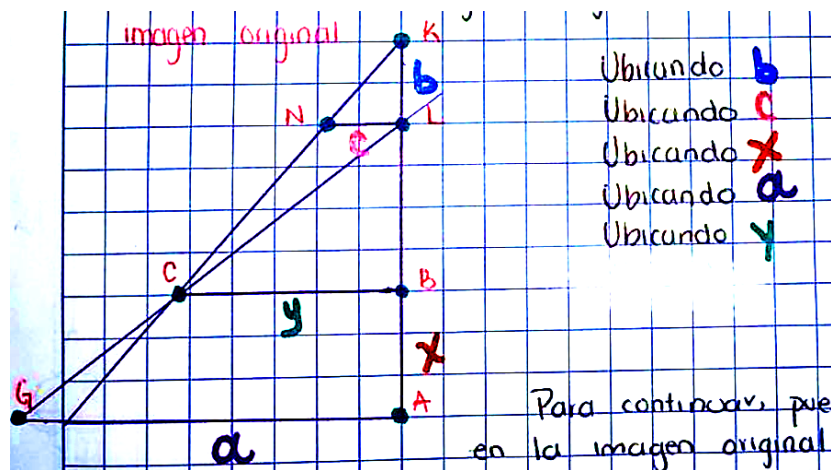 imagen original
K
b
N
L
C
C
B
y
x
G
A
a
Ubicundo b
Ubicando C
Ubicando x
Ubicando a
Ubicando y
Para continuar, pue
en la imagen original